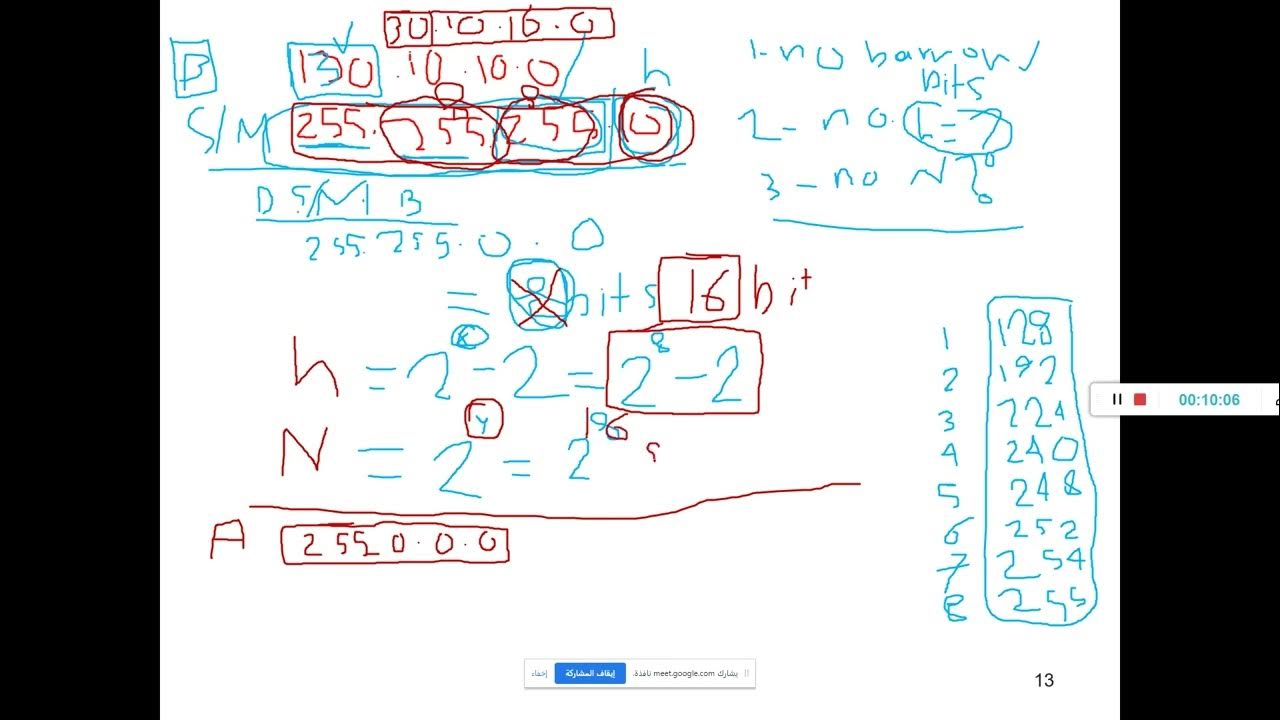 30.10.16.0
B 130.10.10.0 h
8 8
S/M 255.255.255.0
D S/M B
255.255.0.0
= 8 bits 16 bit
h = 2 - 2 = 2^8 - 2
N = 2^y = 2^16
A 255.0.0.0
1- no barrow
bits
2 - no. h = ?
3 - no N ?
1 128
2 192
3 224
4 240
5 248
6 252
7 254
8 255
00:10:06
يشارك meet.google.com نافذة.
إيقاف المشاركة
إخفاء
13